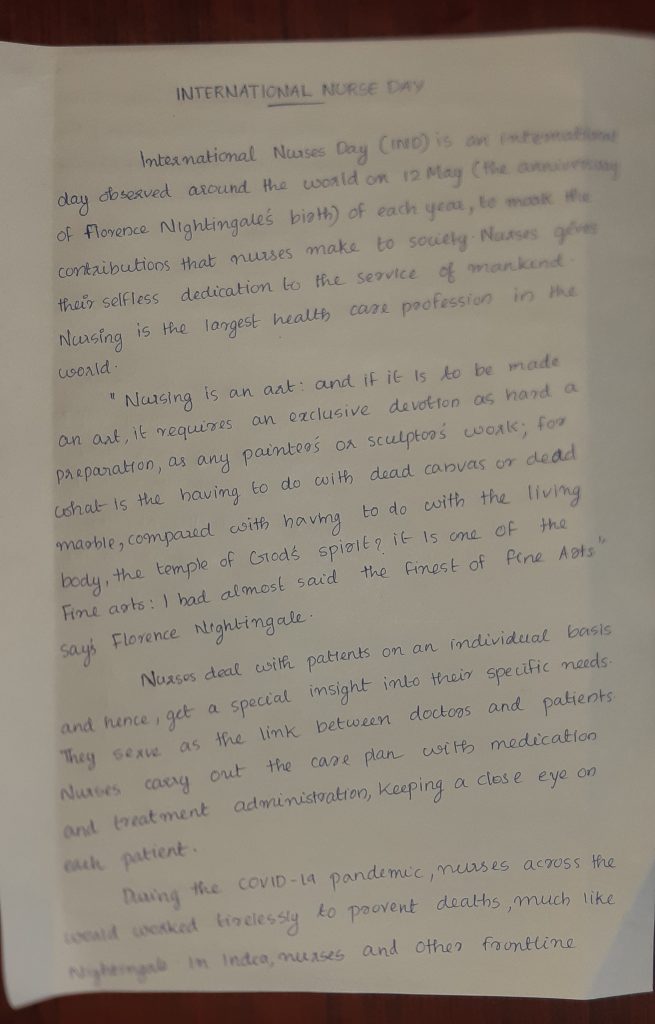 INTERNATIONAL NURSE DAY
International Nurses Day (IND) is an international
day observed around the world on 12 May (the anniversary
of Florence Nightingale's birth) of each year, to mark the
contributions that nurses make to society. Nurses gives
their selfless dedication to the service of mankind.
Nursing is the largest health care profession in the
world.
"Nursing is an art: and if it is to be made
an art, it requires an exclusive devotion as hard a
preparation, as any painter's or sculptor's work; for
what is the having to do with dead canvas or dead
marble, compared with having to do with the living
body, the temple of God's spirit? it is one of the
Fine arts: I had almost said the finest of Fine Arts"
say's Florence Nightingale.
Nurses deal with patients on an individual basis
and hence, get a special insight into their specific needs.
They serve as the link between doctors and patients.
Nurses carry out the care plan with medication
and treatment administration, keeping a close eye on
each patient.
During the COVID-19 pandemic, nurses across the
world worked tirelessly to prevent deaths, much like
Nightingale in India, nurses and other frontline